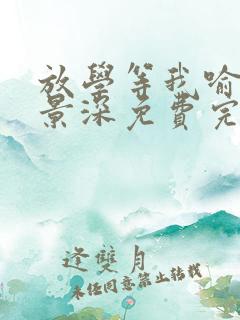 放學等我喻
景深免費完
逢雙月
未经同意禁止转载